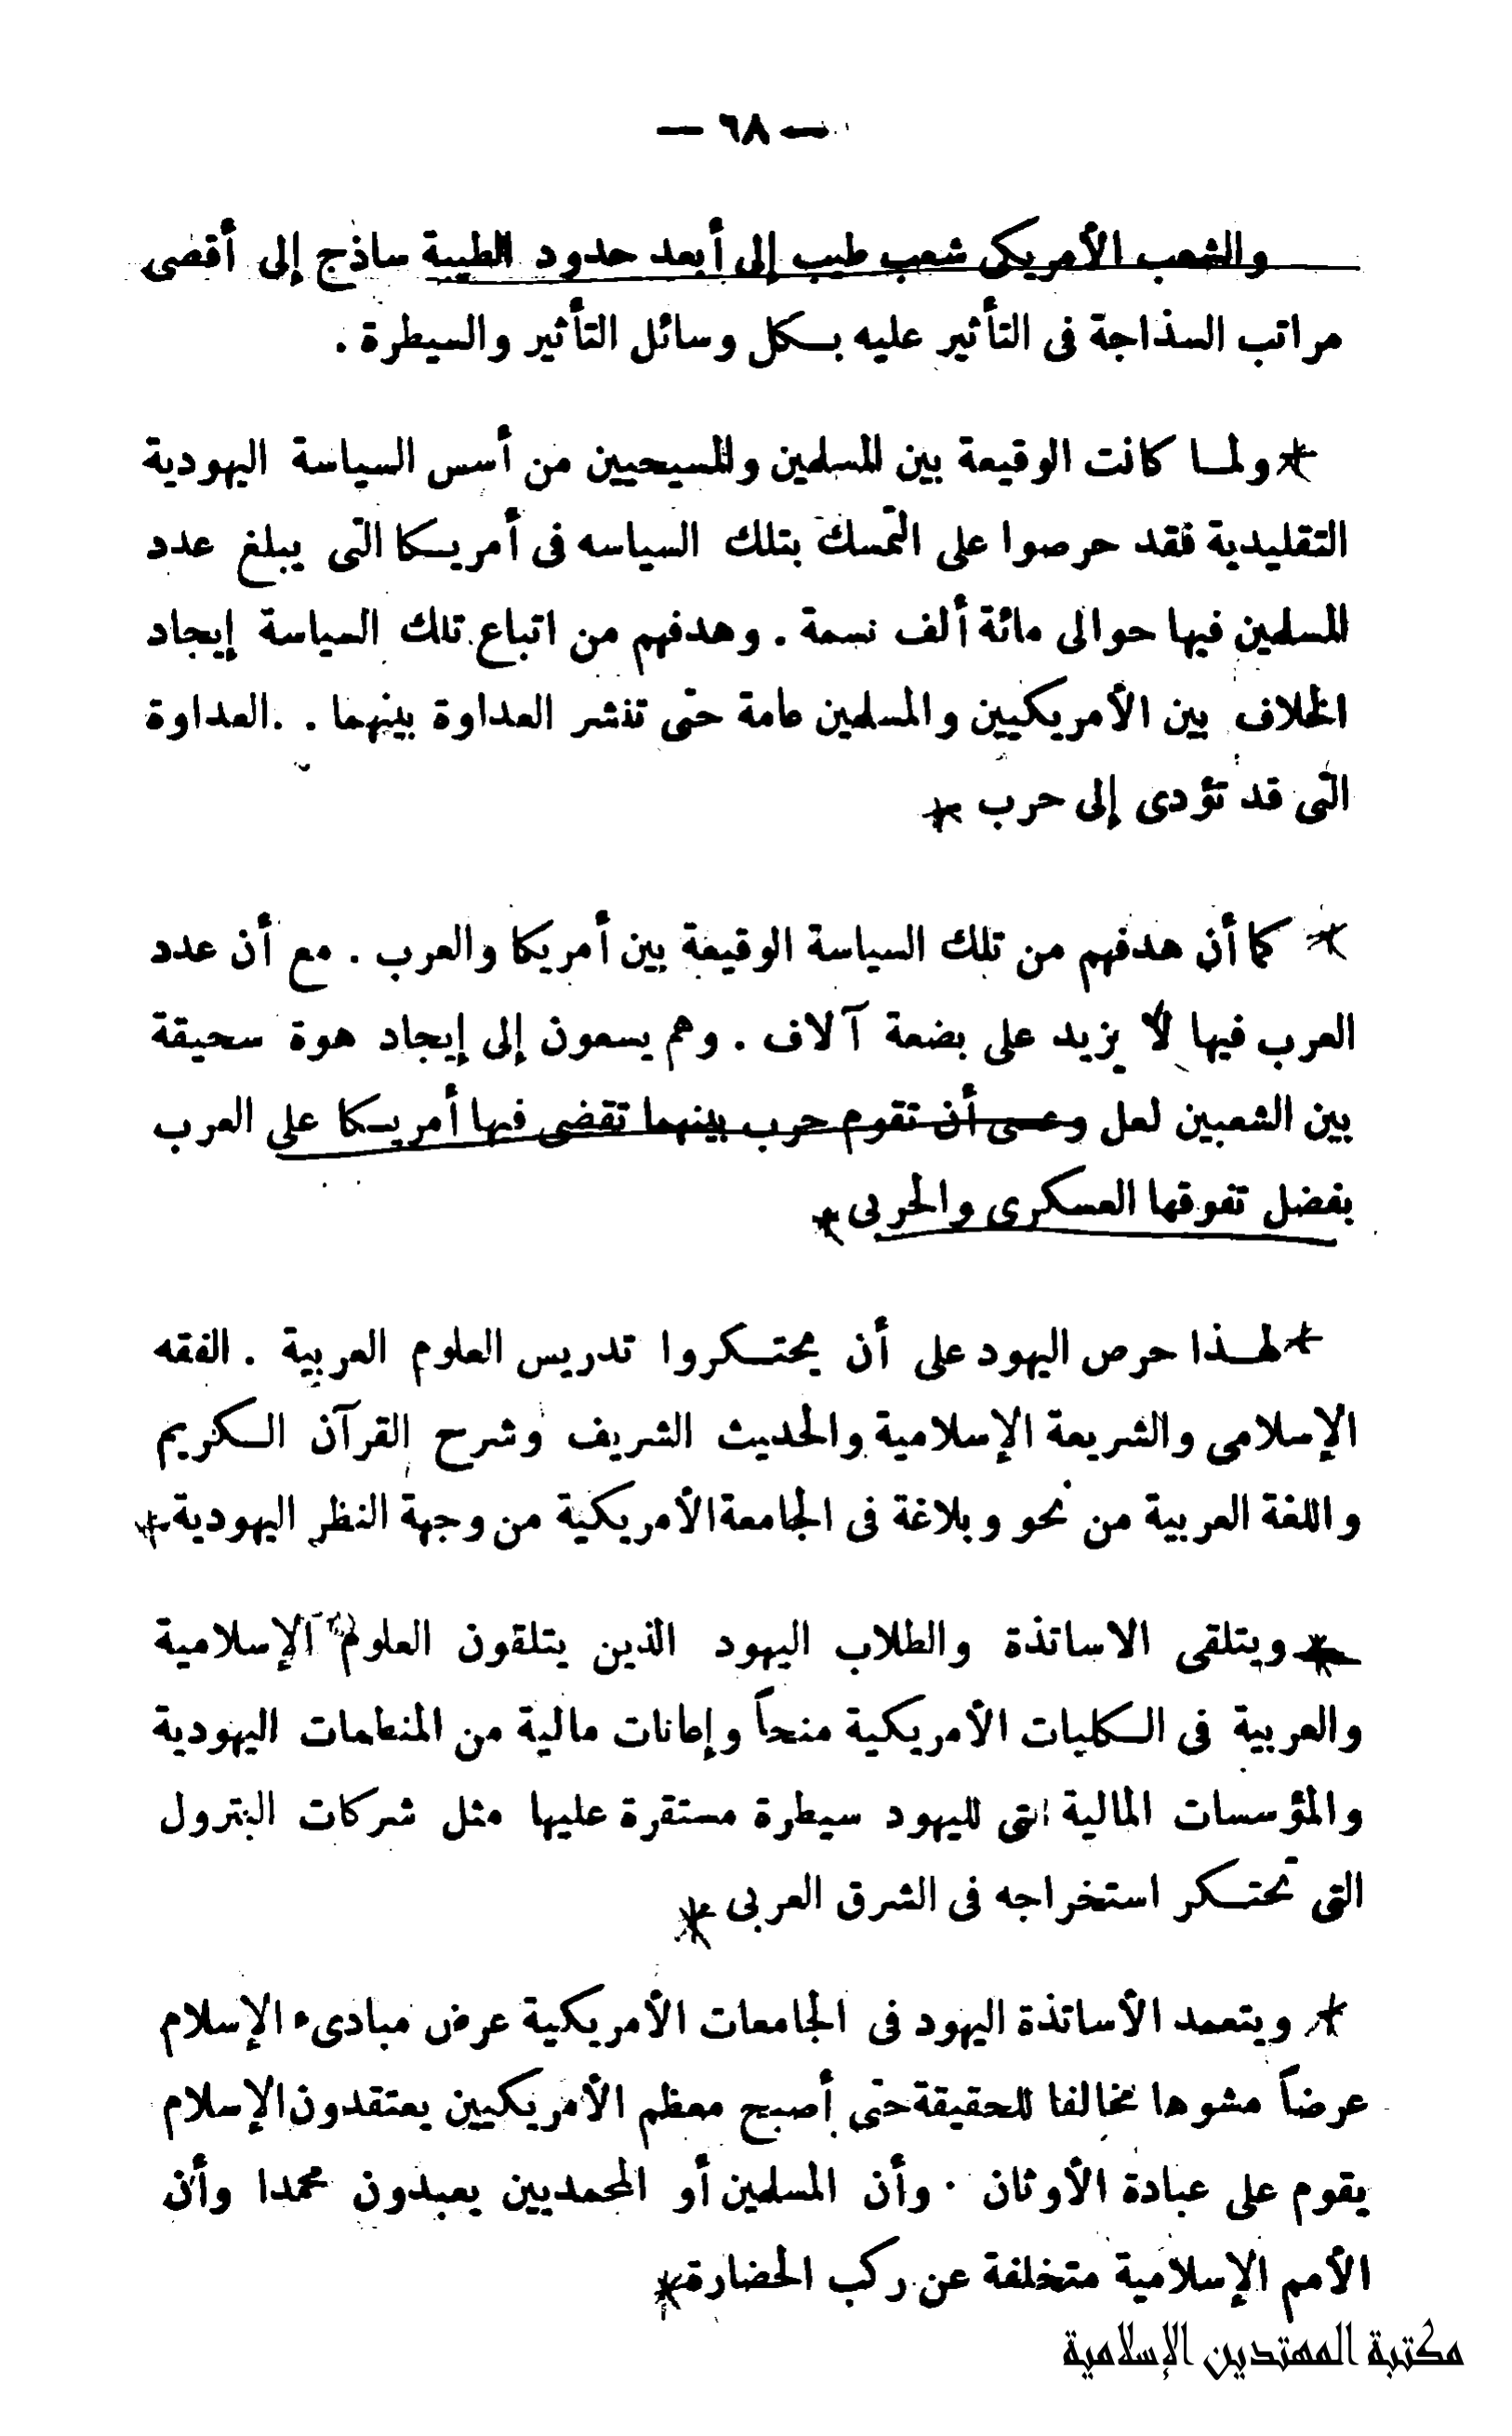 — ٦٨ —
والشعب الأمريكى شعب طيب إلى أبعد حدود الطيبة ساذج إلى أقصى
مراتب السذاجة فى التأثير عليه بكل وسائل التأثير والسيطرة .
* ولما كانت الوقيعة بين المسلمين والمسيحيين من أسس السياسة اليهودية
التقليدية فقد حرصوا على التمسك بتلك السياسه فى أمريكا التى يبلغ عدد
المسلمين فيها حوالى مائة ألف نسمة . وهدفهم من اتباع تلك السياسة إيجاد
الخلاف بين الأمريكيين والمسلمين عامة حتى تنشر العداوة بينهما . . العداوة
التى قد تؤدى إلى حرب *
* كما أن هدفهم من تلك السياسة الوقيعة بين أمريكا والعرب . مع أن عدد
العرب فيها لا يزيد على بضعة آلاف . وهم يسعون إلى إيجاد هوة سحيقة
بين الشعبين لعل وعسى أن تقوم حرب بينهما تقضى فيها أمريكا على العرب
بفضل تفوقها العسكرى والحربى *
* لهذا حرص اليهود على أن يحتكروا تدريس العلوم العربية . الفقه
الإسلامى والشريعة الإسلامية والحديث الشريف وشرح القرآن الكريم
واللغة العربية من نحو وبلاغة فى الجامعة الأمريكية من وجهة النظر اليهودية *
* ويتلقى الاساتذة والطلاب اليهود الذين يتلقون العلوم الإسلامية
والعربية فى الكليات الأمريكية منحاً وإعانات مالية من المنظمات اليهودية
والمؤسسات المالية التى لليهود سيطرة مستقرة عليها مثل شركات البترول
التى تحتكر استخراجه فى الشرق العربى *
* ويتعمد الأساتذة اليهود فى الجامعات الأمريكية عرض مبادىء الإسلام
عرضاً مشوها مخالفا للحقيقة حتى أصبح معظم الأمريكيين يعتقدون الإسلام
يقوم على عبادة الأوثان . وأن المسلمين أو المحمديين يعبدون محمدا وأن
الأمم الإسلامية متخلفة عن ركب الحضارة *
مكتبة المهتدين الإسلامية